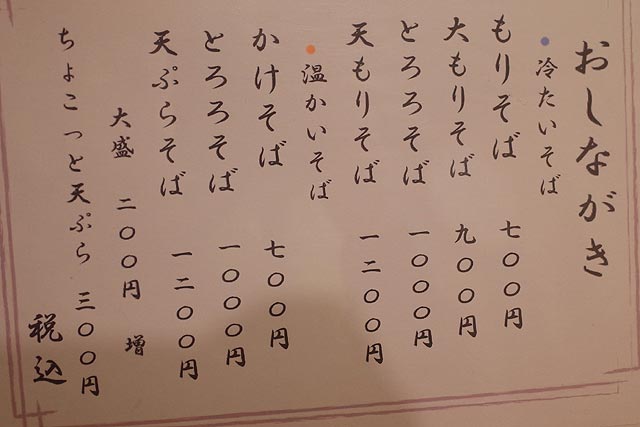 おしながき
冷たいそば
もりそば 七〇〇円
大もりそば 九〇〇円
とろろそば 一〇〇〇円
天もりそば 一二〇〇円
温かいそば
かけそば 七〇〇円
とろろそば 一〇〇〇円
天ぷらそば 一二〇〇円
大盛 二〇〇円 増
ちょこっと天ぷら 三〇〇円
税込